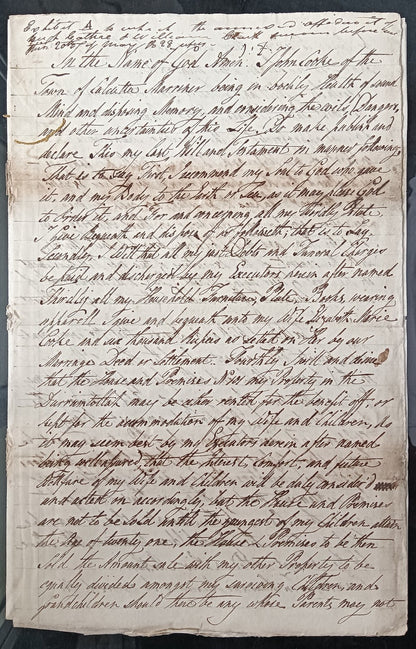 Exhibit A to which the annexed affidavit of
Hugh
this 20th of May 1822
In the Name of God Amen. I John Cooke of the
Town of Calcutta Marriner being in bodily Health of sound
Mind and disposing Memory, and considering the perils, Dangers,
and other uncertainties of this Life, Do make publish and
declare this my last Will and Testament in manner following
That is to Say First, I recommend my Soul to God who gave
it, and my Body to the Earth or Sea, as it may please God
to order it, and For and concerning all my Worldly Estate
I Give Bequeath and dispose of as followeth, that is to Say,
Secondly, I Will that all my just Debts and Funeral Charges
be paid and discharged by my Executors herein after named
Thirdly, all my Household Furniture, Plate, Books, wearing
apparell I give and bequeath unto my Wife
Cooke and six thousand Rupees as settled on Her by our
Marriage Deed or Settlement. Fourthly, I will and
that the House and Premises Now my Property in the
may be either rented for the benefit off or
kept for the accommodation of my Wife and Children, As
it may seem best by my Executors herein after named
being well assured, that the Interest, Comfort, and future
of my Wife and Children will be duly consider'd
and acted on accordingly, but the House and Premises
are not to be Sold untill the youngest of my Children attain
the age of twenty one, the House & Premises to be then
Sold the Amount sale with my other Property to be
equally divided amongst my surviving Children, and
grandchildren should there be any whose Parents may not